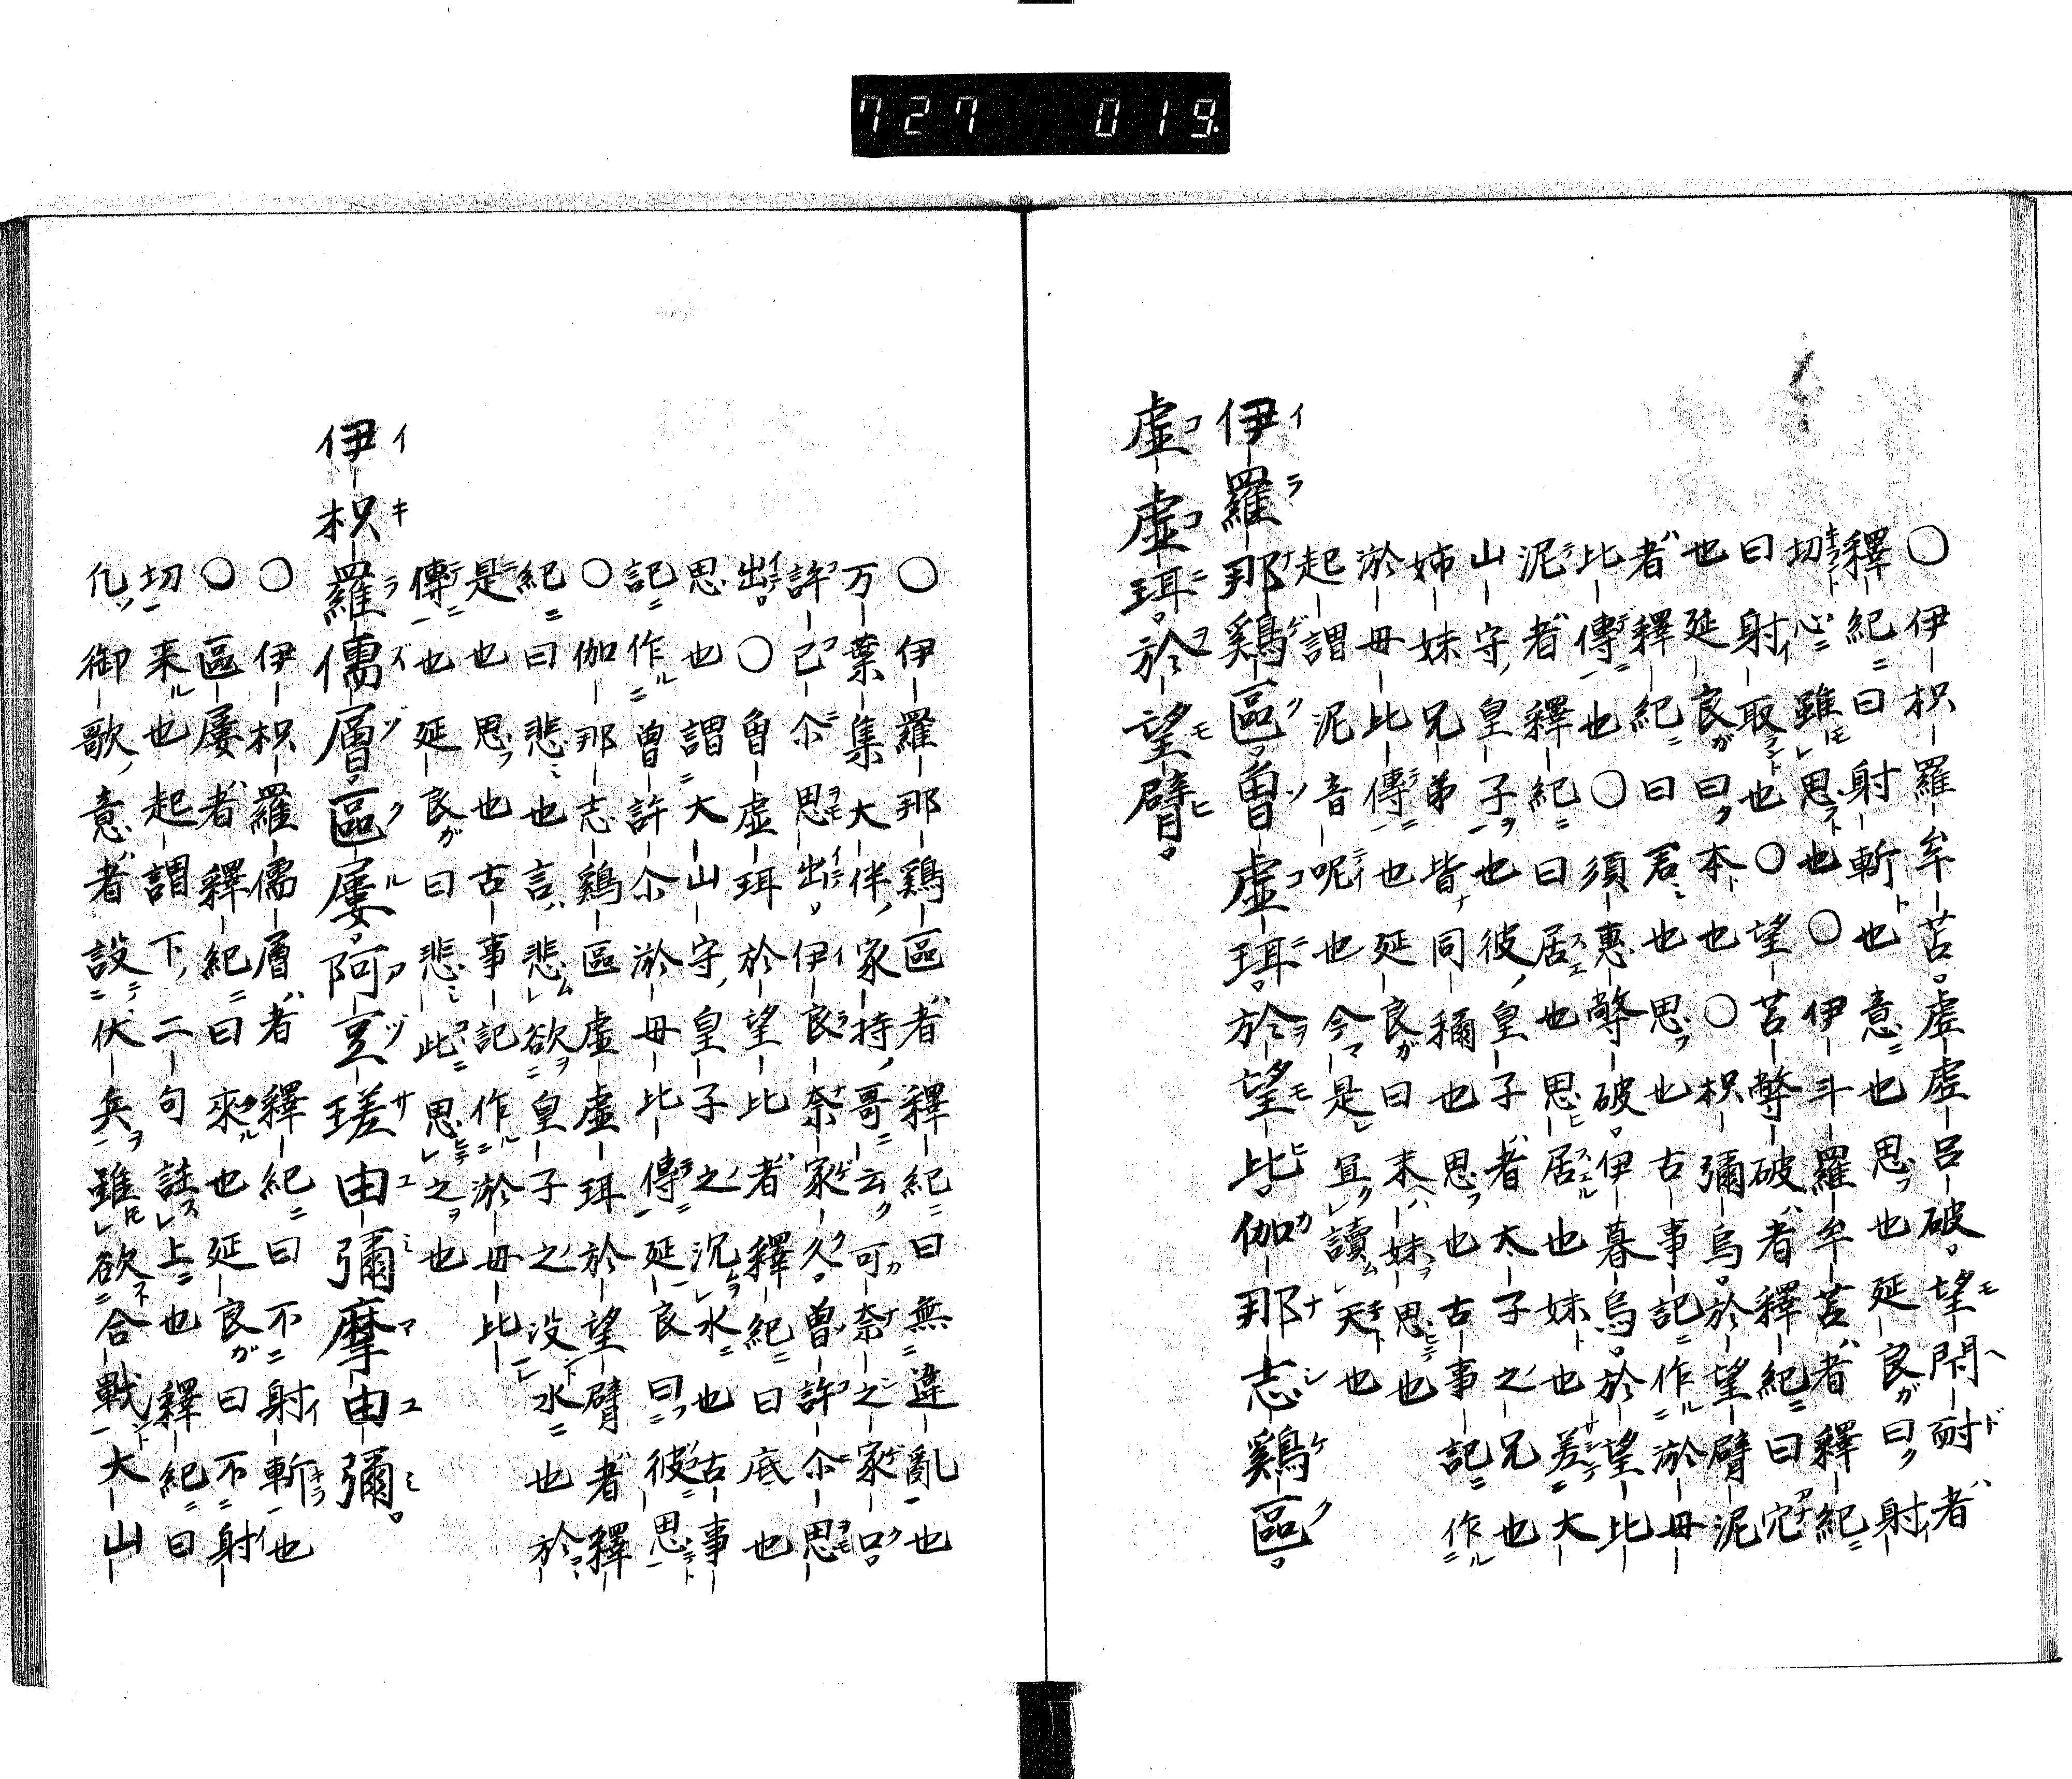 727 019
○伊枳羅牟苫虚虚呂破望閇耐者
釋紀曰射斬也意也思也延良曰射
切心雖思也○伊斗羅牟苫者釋紀
曰射取也○望苫弊破者釋紀曰穴
也延良曰本也○枳彌烏於望臂泥
者釋紀曰君也思也古事記作淤母
比傳也○須惠弊破伊暮烏於望比
泥者釋紀曰居也思居也妹也差大
山守皇子也彼皇子者太子之兄也
姉妹兄弟皆同稱也思也古事記作
淤母比傳也延良曰末妹思也
起謂泥音呢也今是宜讀天也
伊羅那鷄區曽虚珥於望比伽那志鷄區
虚虚珥於望臂
○伊羅那鷄區者釋紀曰無違亂也
万葉集大伴家持哥云可奈之家口
許己尒思出伊良奈家久曽許尒思
出○曽虚珥於望比者釋紀曰底也
思也謂大山守皇子之沉水也古事
記作曽許尒淤母比傳延良曰彼思
○伽那志鷄區虚虚珥於望臂者釋
紀曰悲也言悲欲皇子之没水也於
是也思也古事記作淤母比
傳也延良曰悲此思之也
伊枳羅儒層區屢阿豆瑳由彌摩由彌
○伊枳羅儒層者釋紀曰不射斬也
○區屢者釋紀曰來也延良曰不射
切来也起謂下二句詿上也釋紀曰
凢御歌意者設伏兵雖欲合戰大山